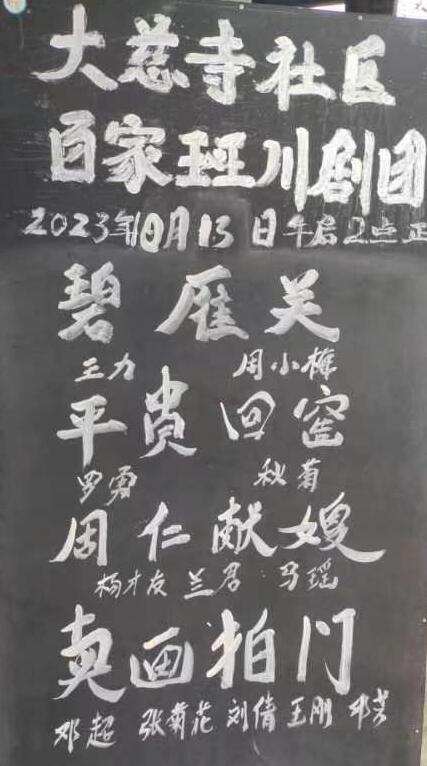 大慈寺社区
百家班川剧团
2023年10月13日午后2点正
碧雁关
王力 周小梅
平贵回窑
罗勇 秋菊
周仁献嫂
杨才友 兰君 马瑶
卖画拍门
邓超 张菊花 刘倩 王刚 邓芳